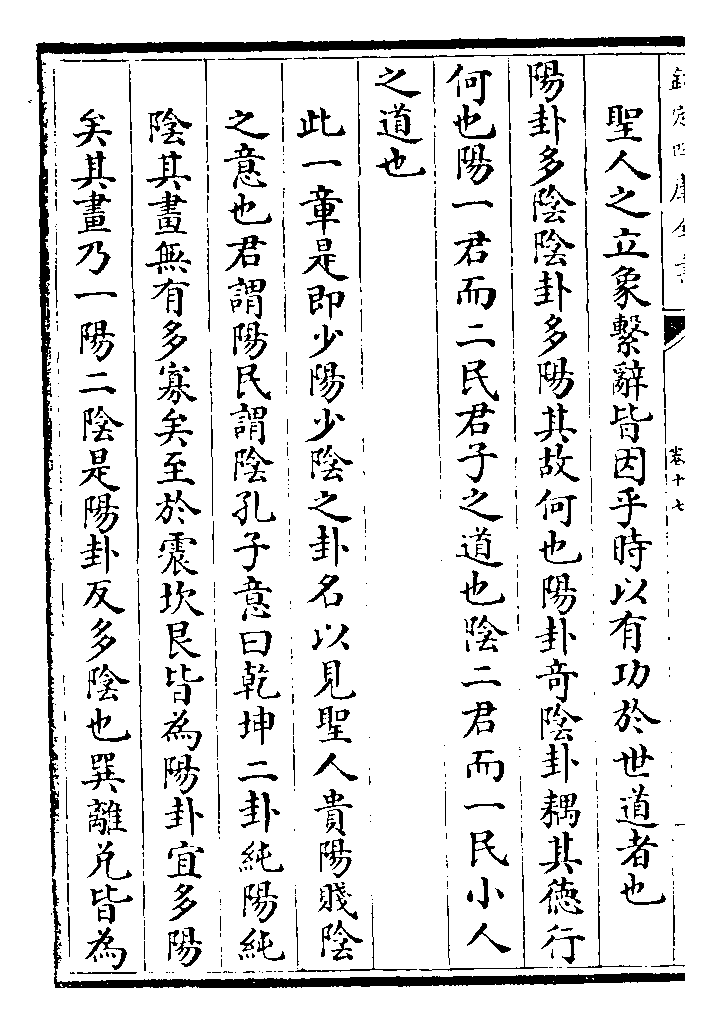 欽定四庫全書
卷十七
聖人之立象繫辭皆因乎時以有功於世道者也
陽卦多陰陰卦多陽其故何也陽卦奇陰卦耦其德行
何也陽一君而二民君子之道也陰二君而一民小人
之道也
此一章是即少陽少陰之卦名以見聖人貴陽賤陰
之意也君謂陽民謂陰孔子意曰乾坤二卦純陽純
陰其畫無有多寡矣至於震坎艮皆為陽卦宜多陽
矣其畫乃一陽二陰是陽卦反多陰也巽離兌皆為